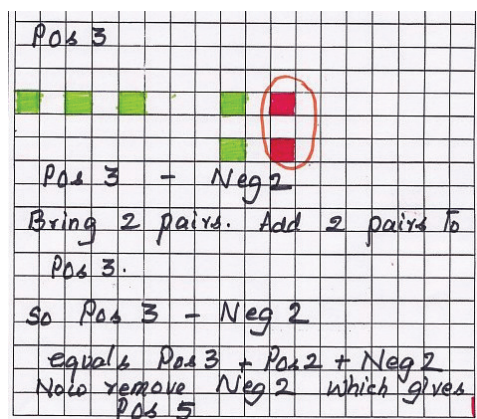 Pos 3
Pos 3 - Neg 2
Bring 2 pairs. Add 2 pairs to
Pos 3.
So Pos 3 - Neg 2
equals Pos 3 + Pos 2 + Neg 2
Now remove Neg 2 which gives
Pos 5